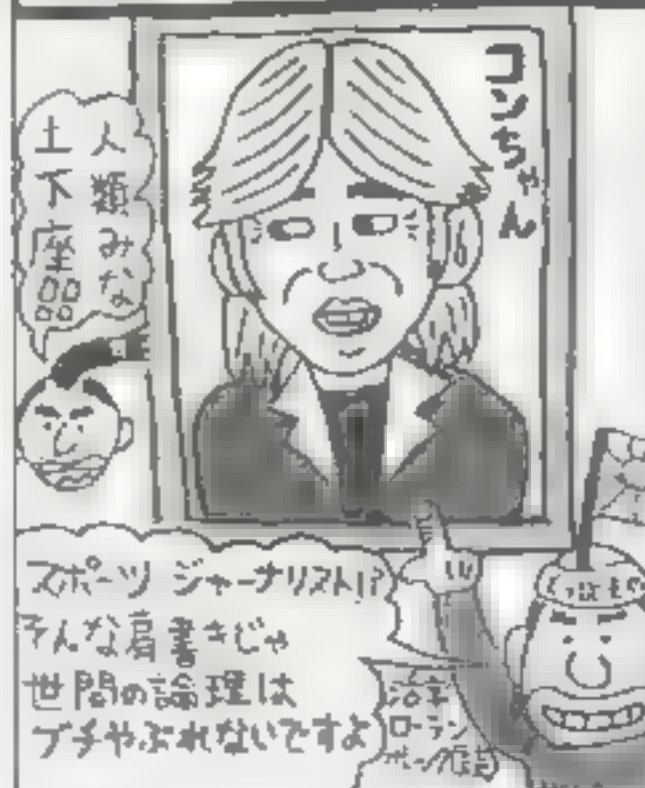 コンちゃん
人類みな
土下座
スポーツ ジャーナリスト!?
そんな肩書きじゃ
世間の論理は
ブチやぶれないですよ
ローラン